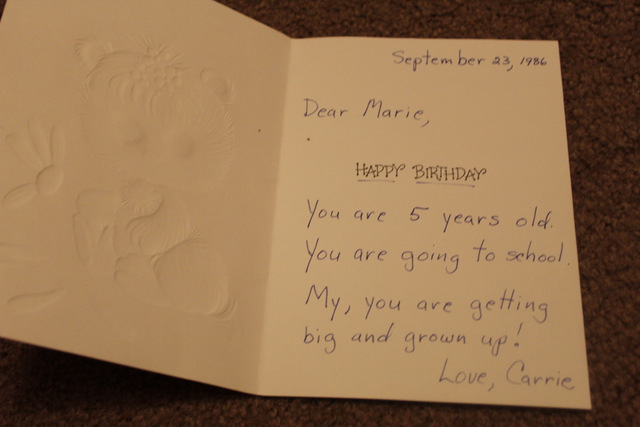 September 23, 1986
Dear Marie,
HAPPY BIRTHDAY
You are 5 years old.
You are going to school.
My, you are getting
big and grown up!
Love, Carrie